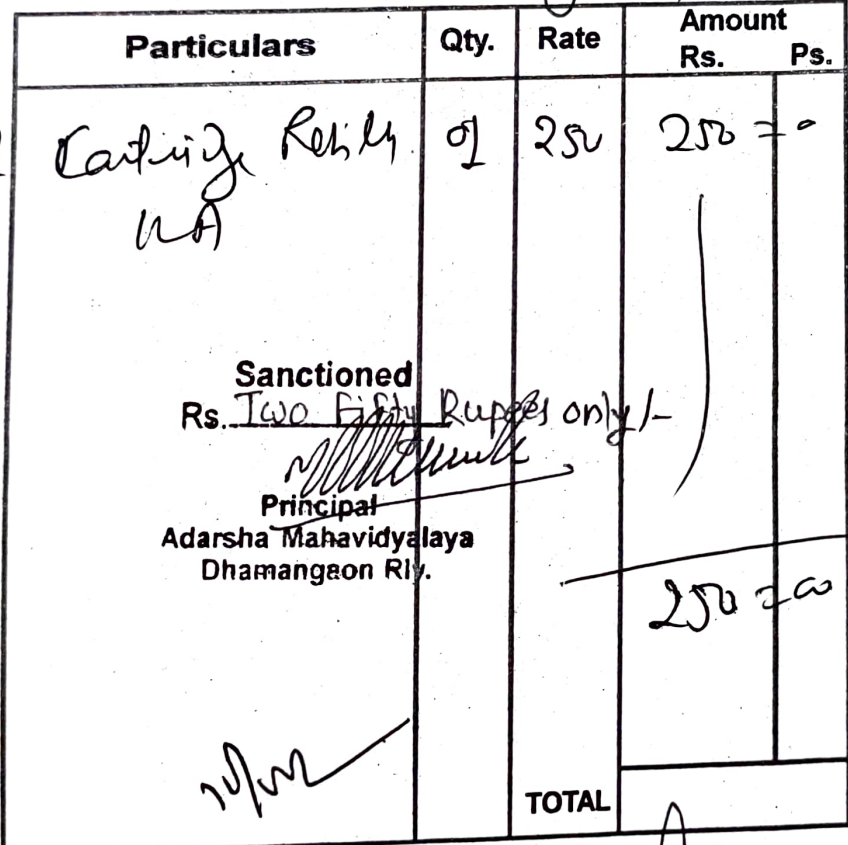 Particulars Qty. Rate Amount
Rs. Ps.
Cartridge Refilly 01 250 250 = 0
Sanctioned
Rs. Two Fifty Rupees only/-
Principal
Adarsha Mahavidyalaya
Dhamangaon Rly.
250 = 00
TOTAL